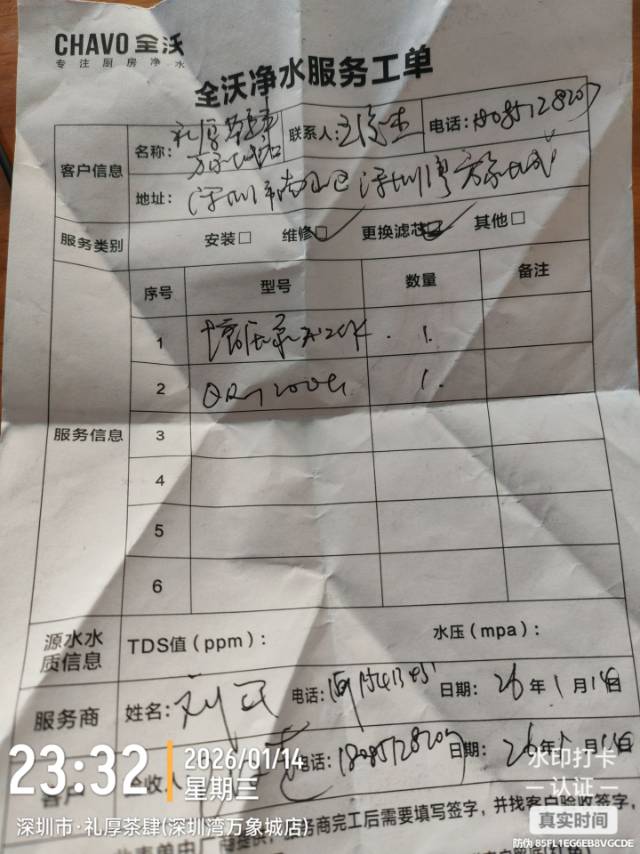 CHAVO 全沃
专注厨房净水
全沃净水服务工单
客户信息
名称:礼厚茶肆 万象城店
联系人:
电话:18085128207
地址:深圳市南山区深圳湾万象城
服务类别
安装□ 维修☑ 更换滤芯☑ 其他□
服务信息
序号 型号 数量 备注
1 增压泵 1.
2 1.
3
4
5
6
源水水质信息
TDS值(ppm): 水压(mpa):
服务商
姓名:刘 电话: 日期:26年1月14日
客户
收人 电话:18085128207 日期:26年1月14日
23:32
2026/01/14
星期三
深圳市·礼厚茶肆(深圳湾万象城店)
水印打卡
认证
真实时间
防伪 85FL1EG6EB8VGCDE
商完工后需要填写签字,并找客户验收签字,